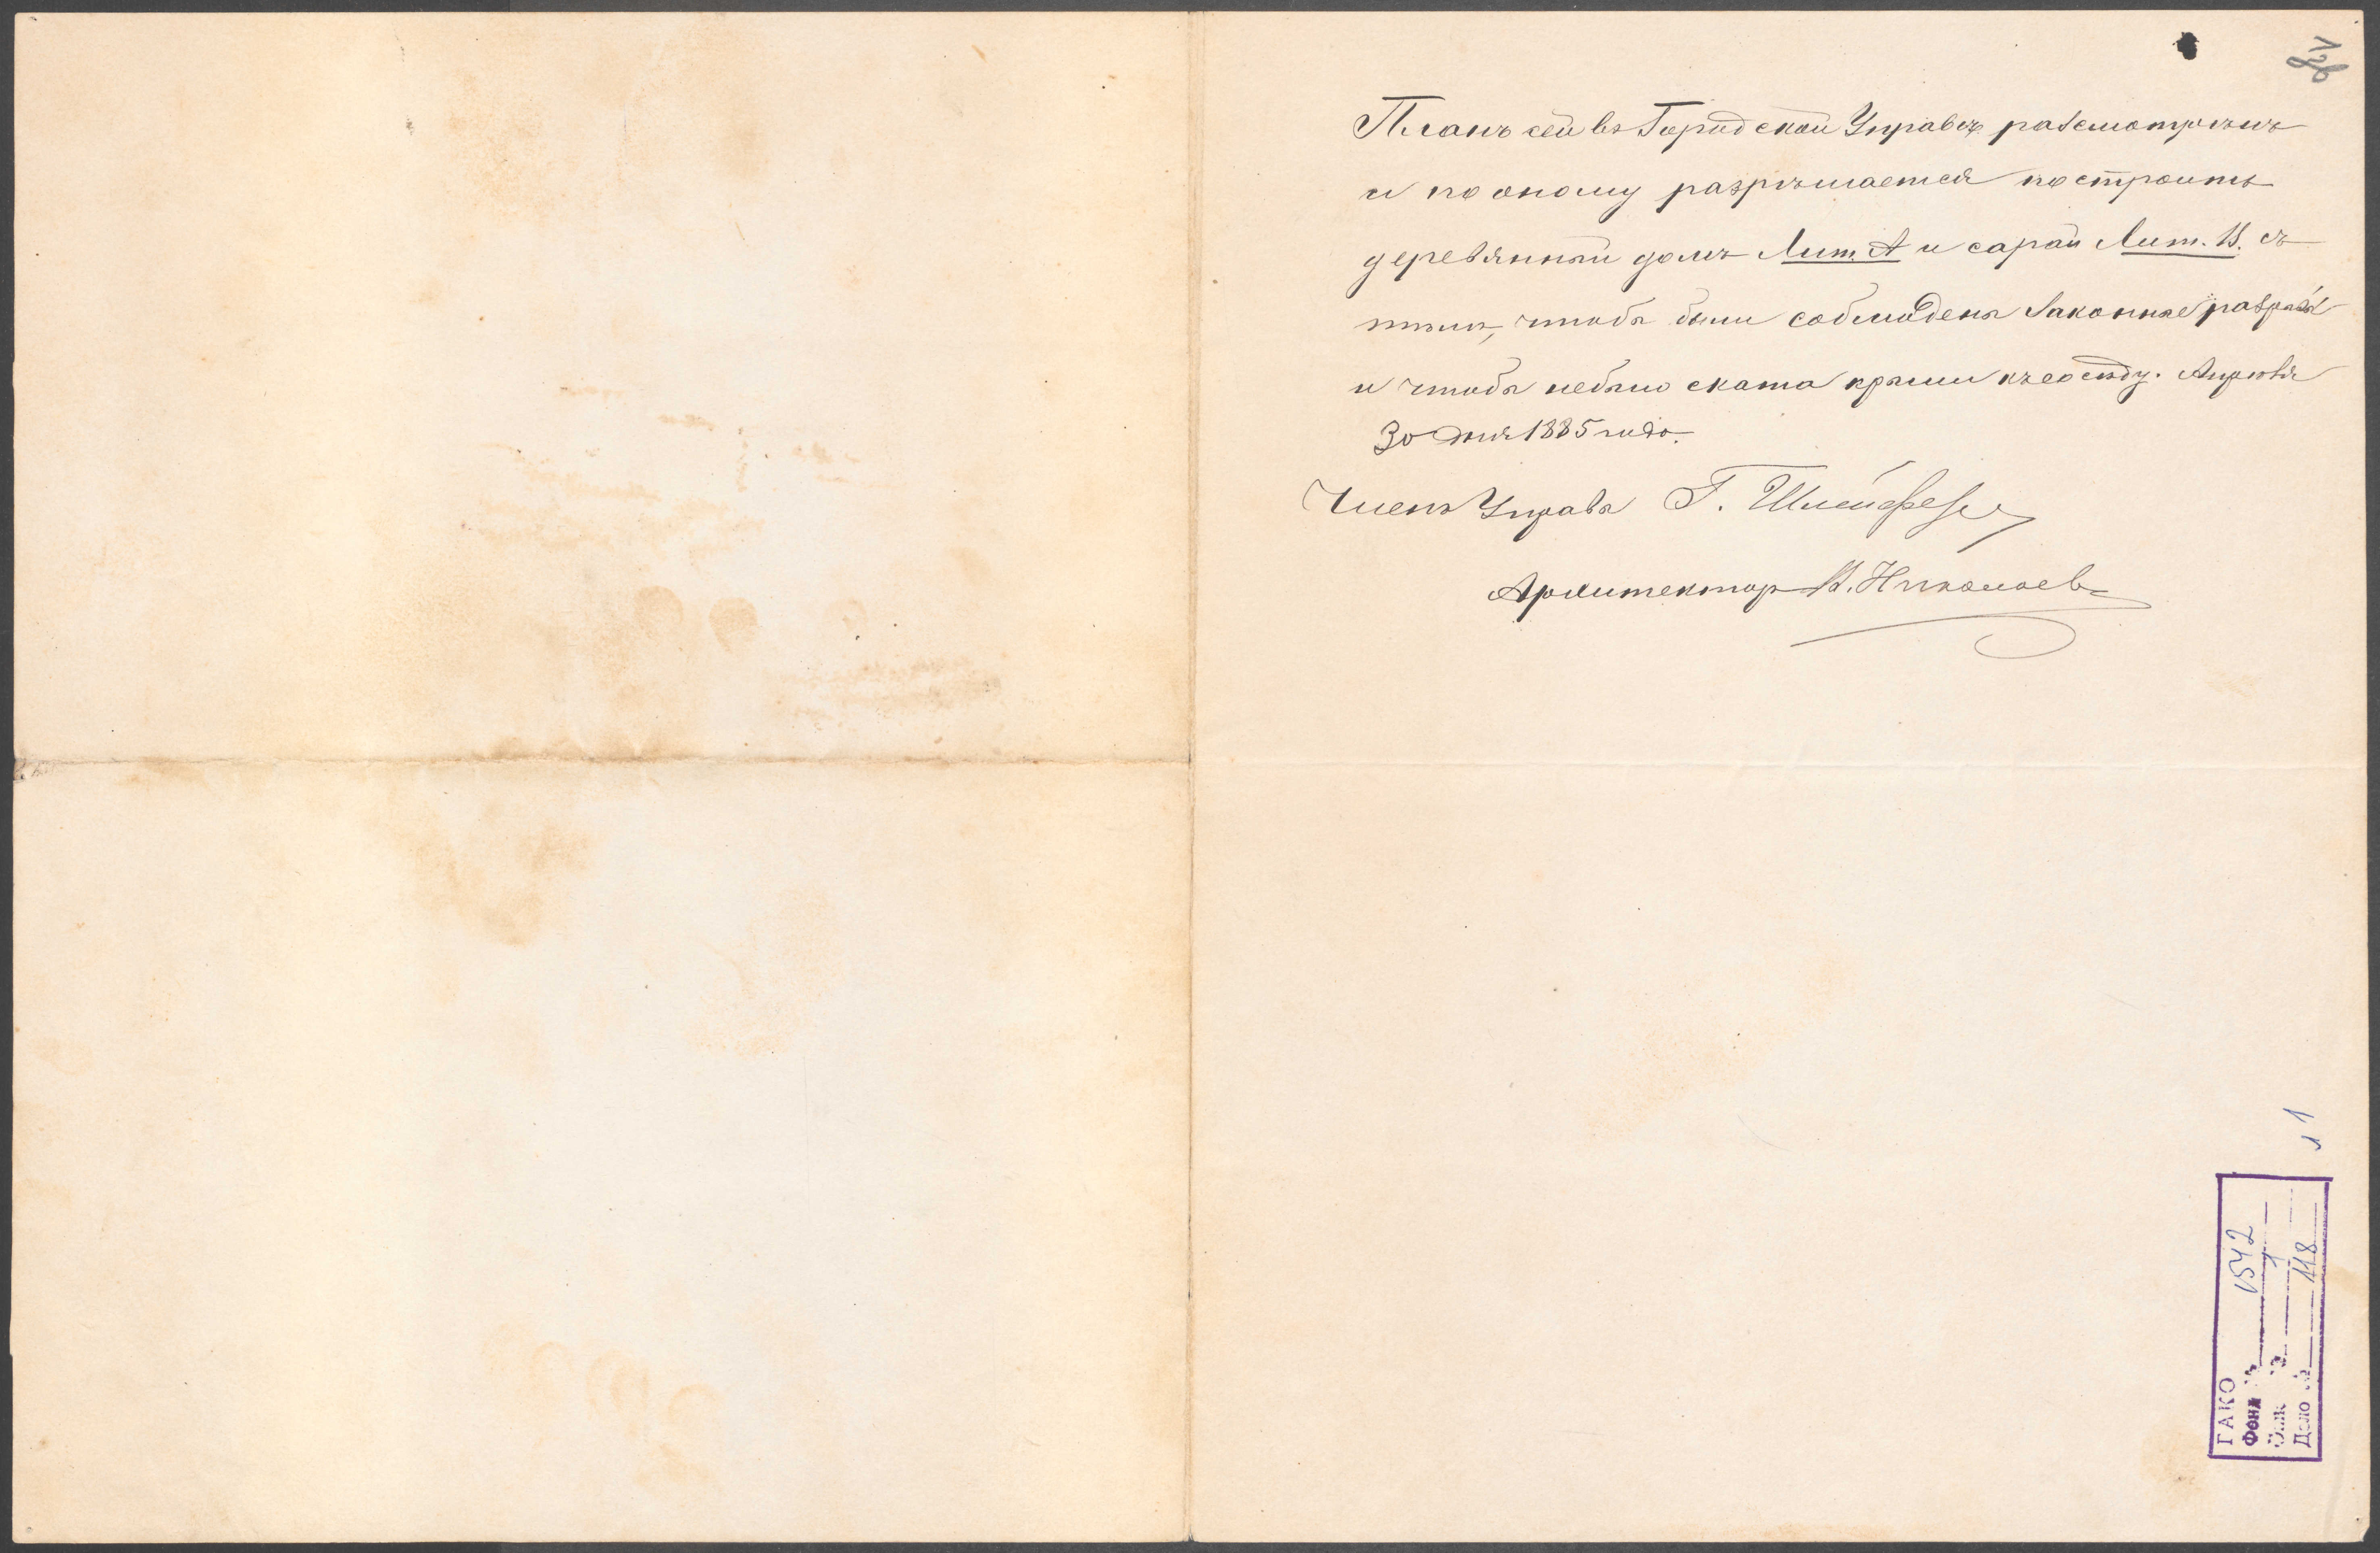 Планъ сей въ Городской Управѣ разсмотрѣнъ
и по оному разрѣшается построить
деревянный домъ Лит. А и сарай Лит. В. съ
тѣмъ, чтобы были соблюдены законные разрывы
и чтобы небыло ската крыши къ сосѣду. Апрѣля
30 дня 1885 года.
Членъ Управы Г. Шлейфер
Архитекторъ В. Николаев
л 1
ГАКО
Фонд № 1542
Опись № 1
Дело № 118